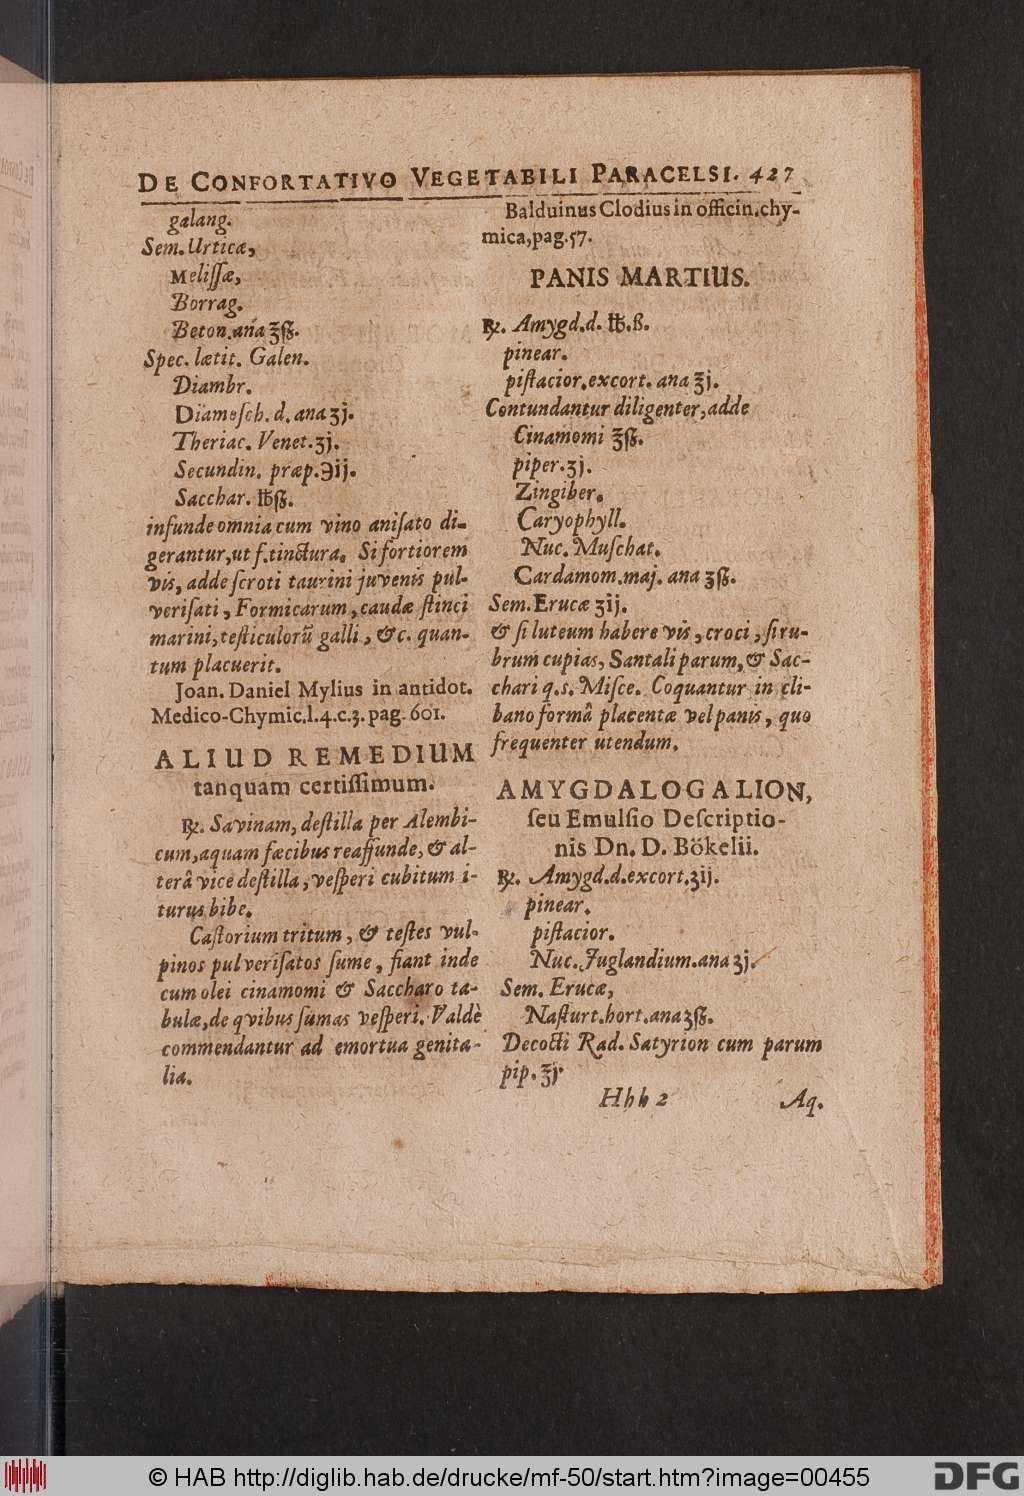 DE CONFORTATIVO VEGETABILI PARACELSI. 427
galang.
Sem. Urticæ,
Meliſſæ,
Borrag.
Beton. ana ʒß.
Spec. lætit. Galen.
Diambr.
Diamoſch. d. ana ʒj.
Theriac. Venet. ʒj.
Secundin. præp. ℈ij.
Sacchar. ℔ß.
infunde omnia cum vino aniſato di-
gerantur, ut f. tinctura. Si fortiorem
vis, adde ſcroti taurini juvenis pul-
veriſati, Formicarum, caudæ ſtinci
marini, teſticulorũ galli, &c. quan-
tum placuerit.
Joan. Daniel Mylius in antidot.
Medico-Chymic. l. 4. c. 3. pag. 601.
ALIUD REMEDIUM
tanquam certiſſimum.
℞. Savinam, deſtilla per Alembi-
cum, aquam fæcibus reaffunde, & al-
terâ vice deſtilla, veſperi cubitum i-
turus bibe.
Caſtorium tritum, & teſtes vul-
pinos pulveriſatos ſume, fiant inde
cum olei cinamomi & Saccharo ta-
bulæ, de qvibus ſumas veſperi. Valdè
commendantur ad emortua genita-
lia.
Balduinus Clodius in officin. chy-
mica, pag. 57.
PANIS MARTIUS.
℞. Amygd. d. ℔. ß.
pinear.
piſtacior. excort. ana ℥j.
Contundantur diligenter, adde
Cinamomi ℥ß.
piper. ʒj.
Zingiber.
Caryophyll.
Nuc. Muſchat.
Cardamom. maj. ana ʒß.
Sem. Erucæ ʒij.
& ſi luteum habere vis, croci, ſi ru-
brum cupias, Santali parum, & Sac-
chari q. s. Miſce. Coquantur in cli-
bano formâ placentæ vel panis, quo
frequenter utendum.
AMYGDALOGALION,
ſeu Emulſio Deſcriptio-
nis Dn. D. Bökelii.
℞. Amygd. d. excort. ʒij.
pinear.
piſtacior.
Nuc. Juglandium. ana ʒj.
Sem. Erucæ,
Naſturt. hort. ana ʒß.
Decocti Rad. Satyrion cum parum
pip. ℥j.
Hhh 2 Aq.
© HAB http://diglib.hab.de/drucke/mf-50/start.htm?image=00455
DFG